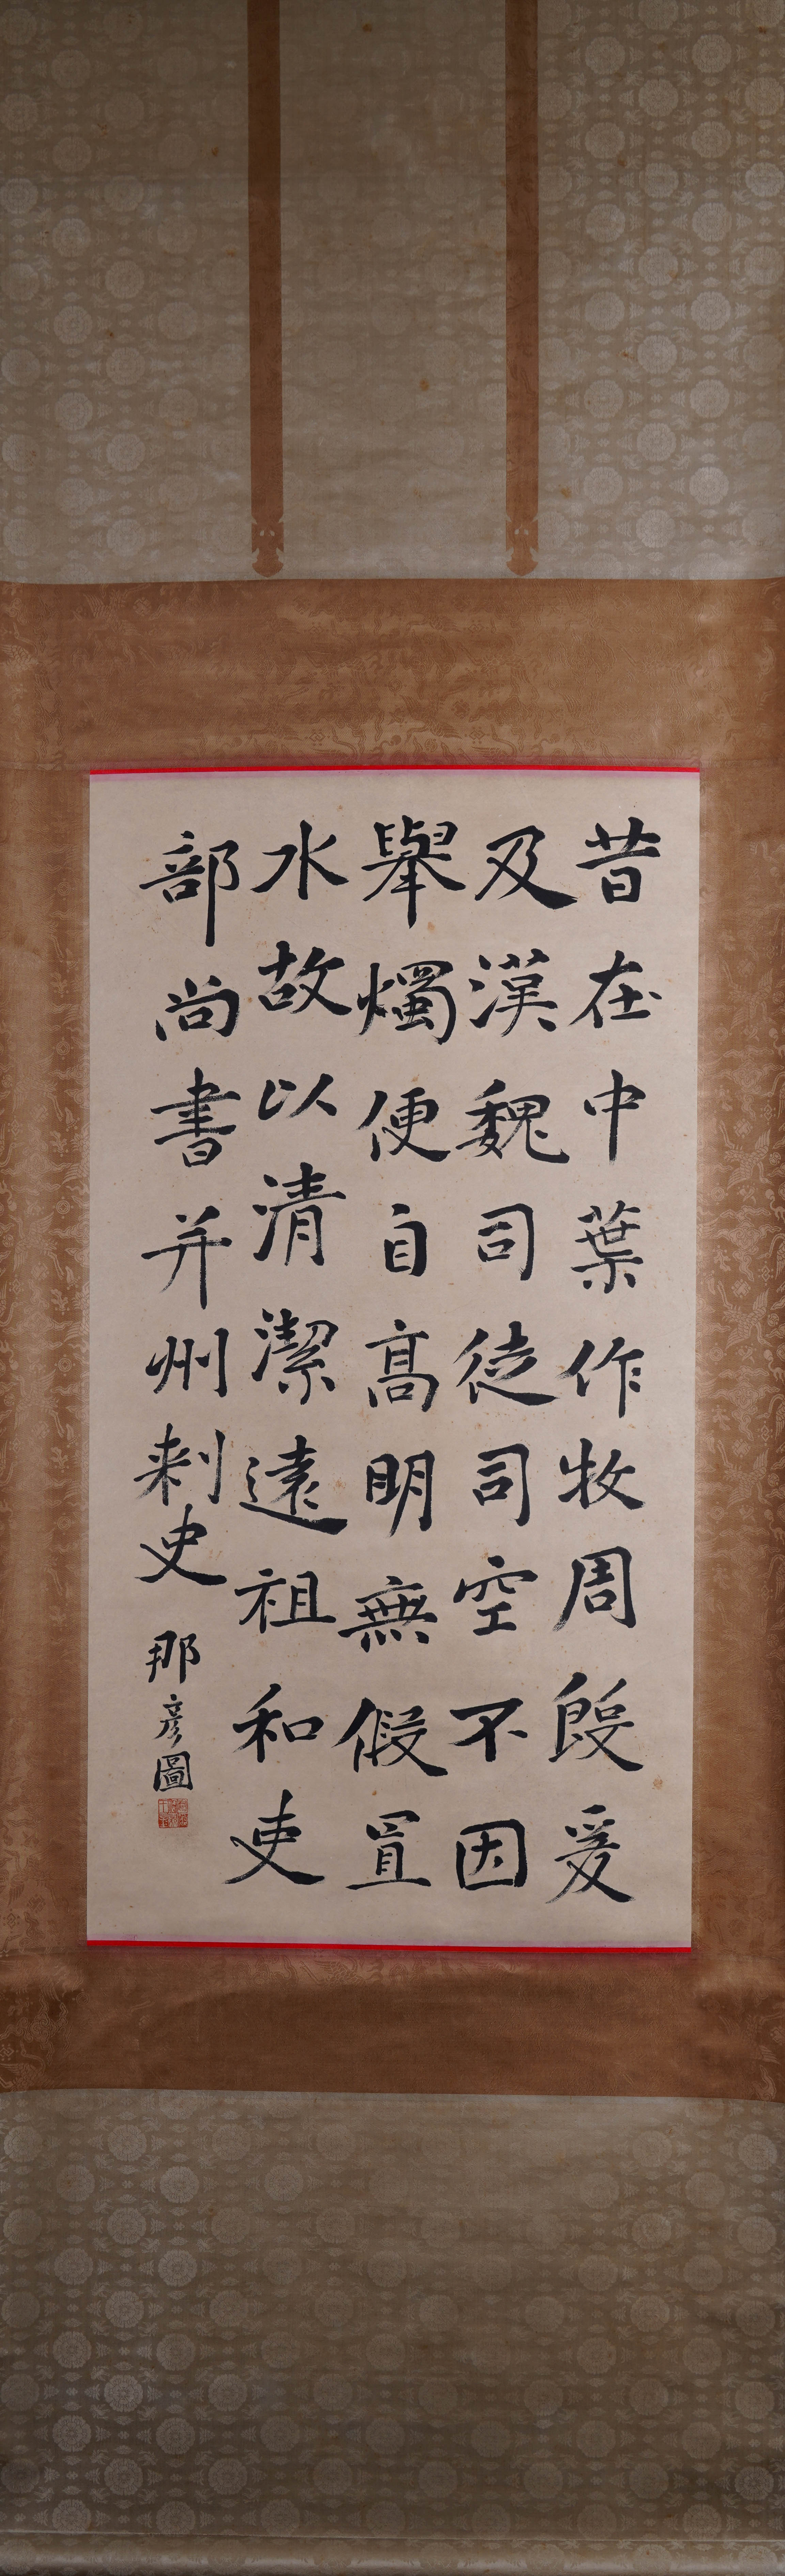 昔在中葉作牧周殷爰
及漢魏司徒司空不因
舉燭便自高明無假置
水故以清潔遠祖和吏
部尚書并州刺史
那彥圖